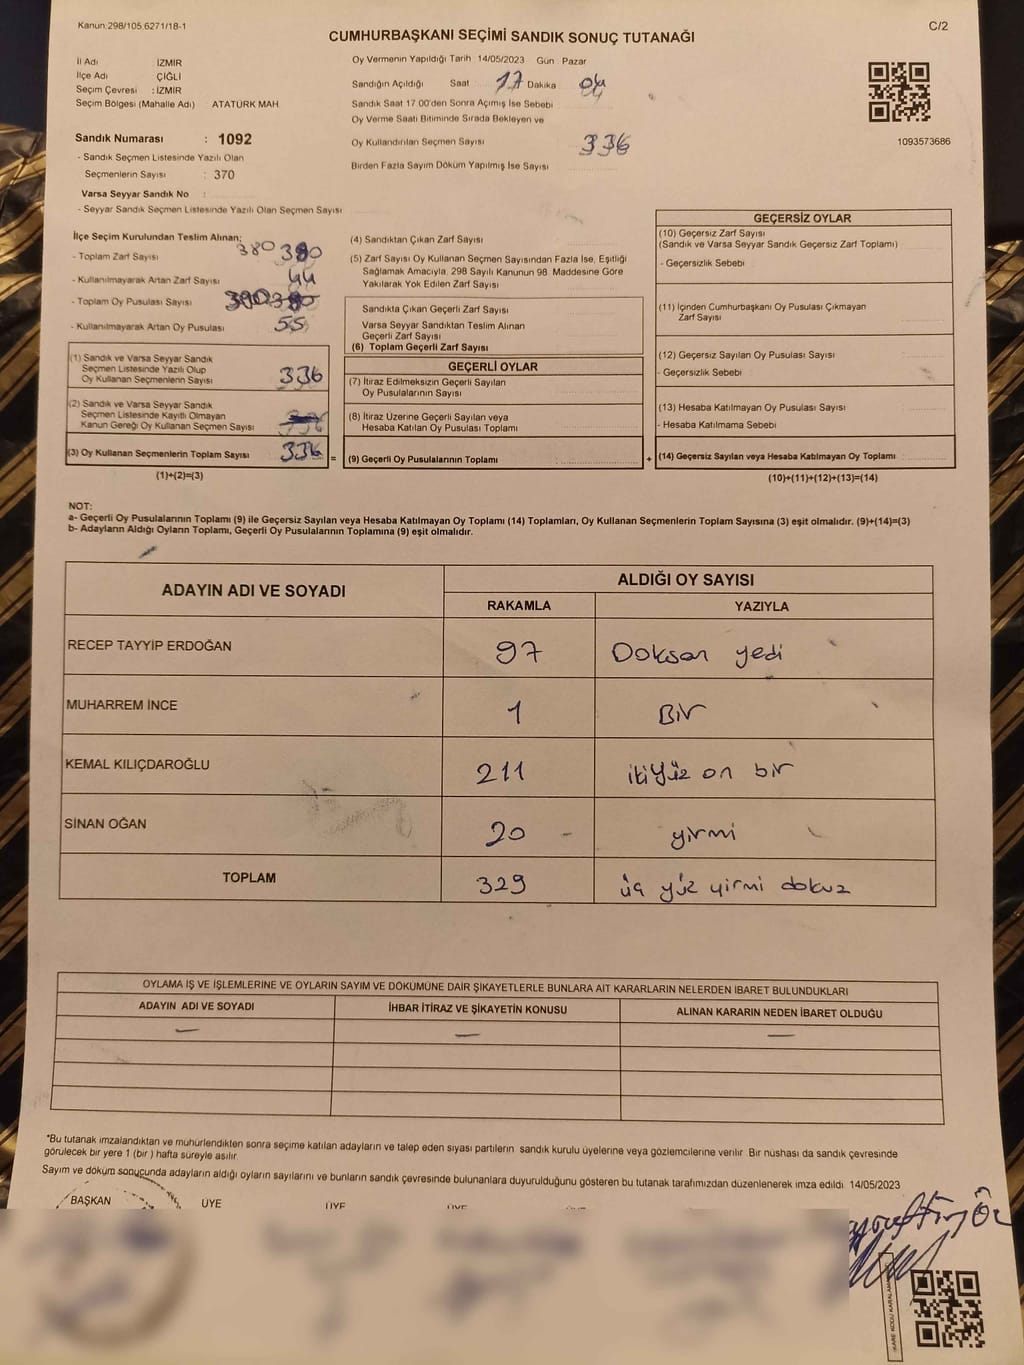 Kanun:298/105,6271/18-1
C/2
CUMHURBAŞKANI SEÇİMİ SANDIK SONUÇ TUTANAĞI
İl Adı İZMİR
İlçe Adı ÇİĞLİ
Seçim Çevresi : İZMİR
Seçim Bölgesi (Mahalle Adı) ATATÜRK MAH
Sandık Numarası : 1092
- Sandık Seçmen Listesinde Yazılı Olan
Seçmenlerin Sayısı : 370
Varsa Seyyar Sandık No :
- Seyyar Sandık Seçmen Listesinde Yazılı Olan Seçmen Sayısı
Oy Vermenin Yapıldığı Tarih 14/05/2023 Gün Pazar
Sandığın Açıldığı Saat 17 Dakika
Sandık Saat 17.00'den Sonra Açımış İse Sebebi
Oy Verme Saati Bitiminde Sırada Bekleyen ve
Oy Kullandırılan Seçmen Sayısı 336
Birden Fazla Sayım Döküm Yapılmış İse Sayısı
1093573686
İlçe Seçim Kurulundan Teslim Alınan:
- Toplam Zarf Sayısı 380 380
- Kullanılmayarak Artan Zarf Sayısı 44
- Toplam Oy Pusulası Sayısı
- Kullanılmayarak Artan Oy Pusulası 55
(1) Sandık ve Varsa Seyyar Sandık
Seçmen Listesinde Yazılı Olup
Oy Kullanan Seçmenlerin Sayısı 336
(2) Sandık ve Varsa Seyyar Sandık
Seçmen Listesinde Kayıtlı Olmayan
Kanun Gereği Oy Kullanan Seçmen Sayısı
(3) Oy Kullanan Seçmenlerin Toplam Sayısı 336 =
(1)+(2)=(3)
(4) Sandıktan Çıkan Zarf Sayısı
(5) Zarf Sayısı Oy Kullanan Seçmen Sayısından Fazla İse, Eşitliği
Sağlamak Amacıyla, 298 Sayılı Kanunun 98. Maddesine Göre
Yakılarak Yok Edilen Zarf Sayısı
Sandıkta Çıkan Geçerli Zarf Sayısı
Varsa Seyyar Sandıktan Teslim Alınan
Geçerli Zarf Sayısı
(6) Toplam Geçerli Zarf Sayısı
GEÇERLİ OYLAR
(7) İtiraz Edilmeksizin Geçerli Sayılan
Oy Pusulalarının Sayısı
(8) İtiraz Üzerine Geçerli Sayılan veya
Hesaba Katılan Oy Pusulası Toplamı
(9) Geçerli Oy Pusulalarının Toplamı +
GEÇERSİZ OYLAR
(10) Geçersiz Zarf Sayısı
(Sandık ve Varsa Seyyar Sandık Geçersiz Zarf Toplamı)
- Geçersizlik Sebebi
(11) İçinden Cumhurbaşkanı Oy Pusulası Çıkmayan
Zarf Sayısı
(12) Geçersiz Sayılan Oy Pusulası Sayısı
- Geçersizlik Sebebi
(13) Hesaba Katılmayan Oy Pusulası Sayısı
- Hesaba Katılmama Sebebi
(14) Geçersiz Sayılan veya Hesaba Katılmayan Oy Toplamı
(10)+(11)+(12)+(13)=(14)
NOT:
a- Geçerli Oy Pusulalarının Toplamı (9) ile Geçersiz Sayılan veya Hesaba Katılmayan Oy Toplamı (14) Toplamları, Oy Kullanan Seçmenlerin Toplam Sayısına (3) eşit olmalıdır. (9)+(14)=(3)
b- Adayların Aldığı Oyların Toplamı, Geçerli Oy Pusulalarının Toplamına (9) eşit olmalıdır.
ADAYIN ADI VE SOYADI ALDIĞI OY SAYISI
RAKAMLA YAZIYLA
RECEP TAYYİP ERDOĞAN 97 Doksan yedi
MUHARREM İNCE 1 Bir
KEMAL KILIÇDAROĞLU 211 ikiyüz on bir
SİNAN OĞAN 20 - yirmi
TOPLAM 329 üç yüz yirmi dokuz
OYLAMA İŞ VE İŞLEMLERİNE VE OYLARIN SAYIM VE DÖKÜMÜNE DAİR ŞİKAYETLERLE BUNLARA AİT KARARLARIN NELERDEN İBARET BULUNDUKLARI
ADAYIN ADI VE SOYADI İHBAR İTİRAZ VE ŞİKAYETİN KONUSU ALINAN KARARIN NEDEN İBARET OLDUĞU
— — —
*Bu tutanak imzalandıktan ve mühürlendikten sonra seçime katılan adayların ve talep eden siyasi partilerin sandık kurulu üyelerine veya gözlemcilerine verilir. Bir nüshası da sandık çevresinde
görülecek bir yere 1 (bir ) hafta süreyle asılır.
Sayım ve döküm sonuçunda adayların aldığı oyların sayılarını ve bunların sandık çevresinde bulunanlara duyurulduğunu gösteren bu tutanak tarafımızdan düzenlenerek imza edildi. 14/05/2023
BAŞKAN ÜYE ÜYE ÜYE